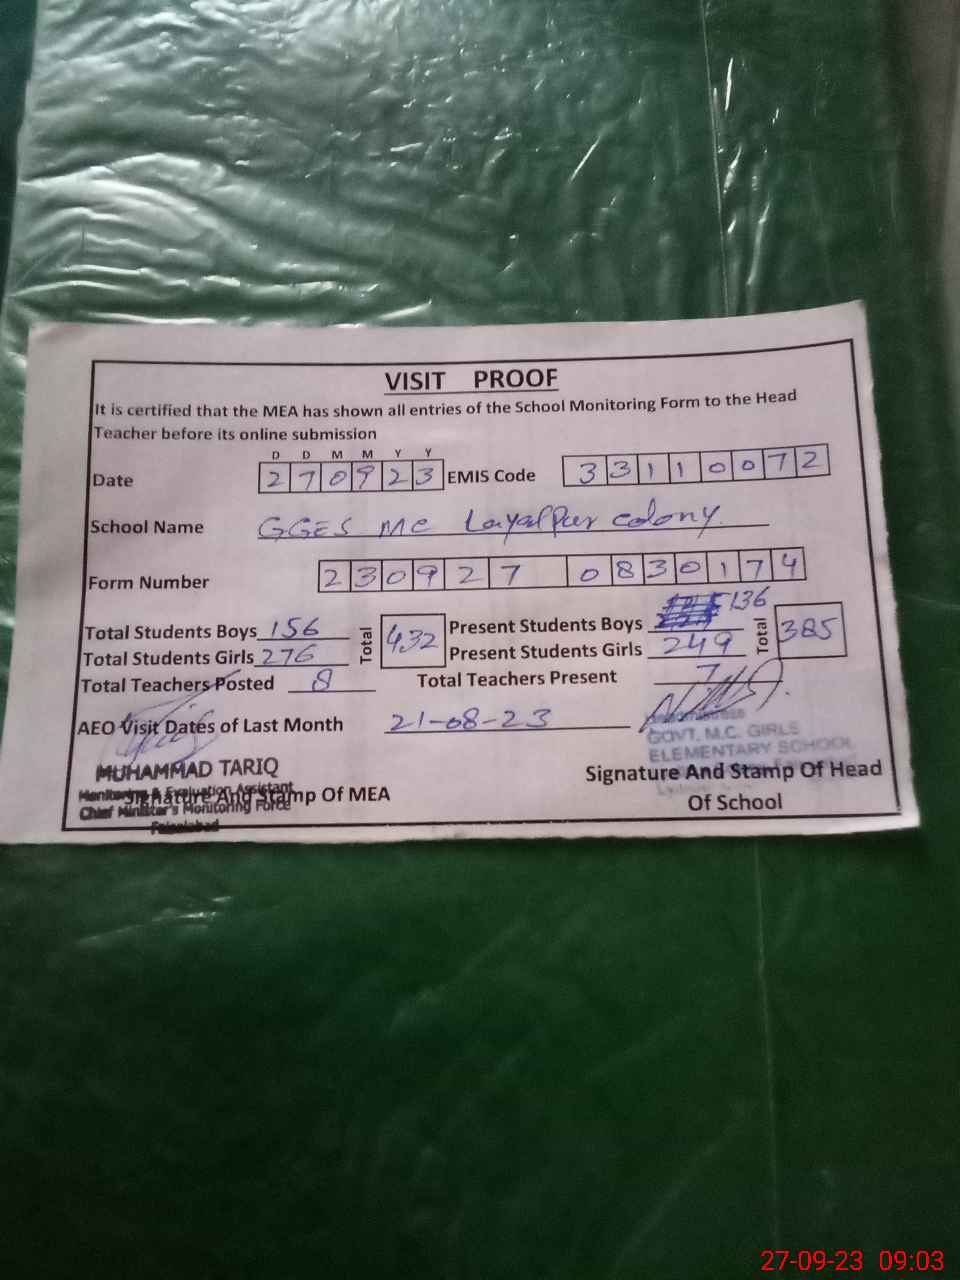 VISIT PROOF
It is certified that the MEA has shown all entries of the School Monitoring Form to the Head
Teacher before its online submission
D D M M Y Y
Date 2 7 0 9 2 3 EMIS Code 3 3 1 1 0 0 7 2
School Name GGES MC Layalpur colony.
Form Number 2 3 0 9 2 7 0 8 3 0 1 7 4
Total Students Boys 156 Total 432 Present Students Boys 136 Total 385
Total Students Girls 276 Present Students Girls 249
Total Teachers Posted 8 Total Teachers Present 7
AEO Visit Dates of Last Month 21-08-23
GOVT, M.C. GIRLS
ELEMENTARY SCHOOL
MUHAMMAD TARIQ
Monitoring & Evaluation Assistant
Chief Minister's Monitoring Force
Faisalabad
Signature And Stamp Of MEA
Signature And Stamp Of Head
Of School
27-09-23 09:03